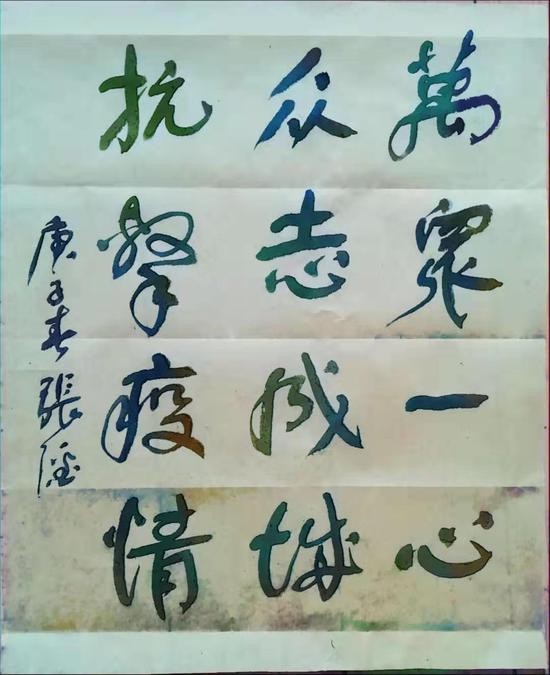 萬眾一心
众志成城
抗擊疫情
庚子春張